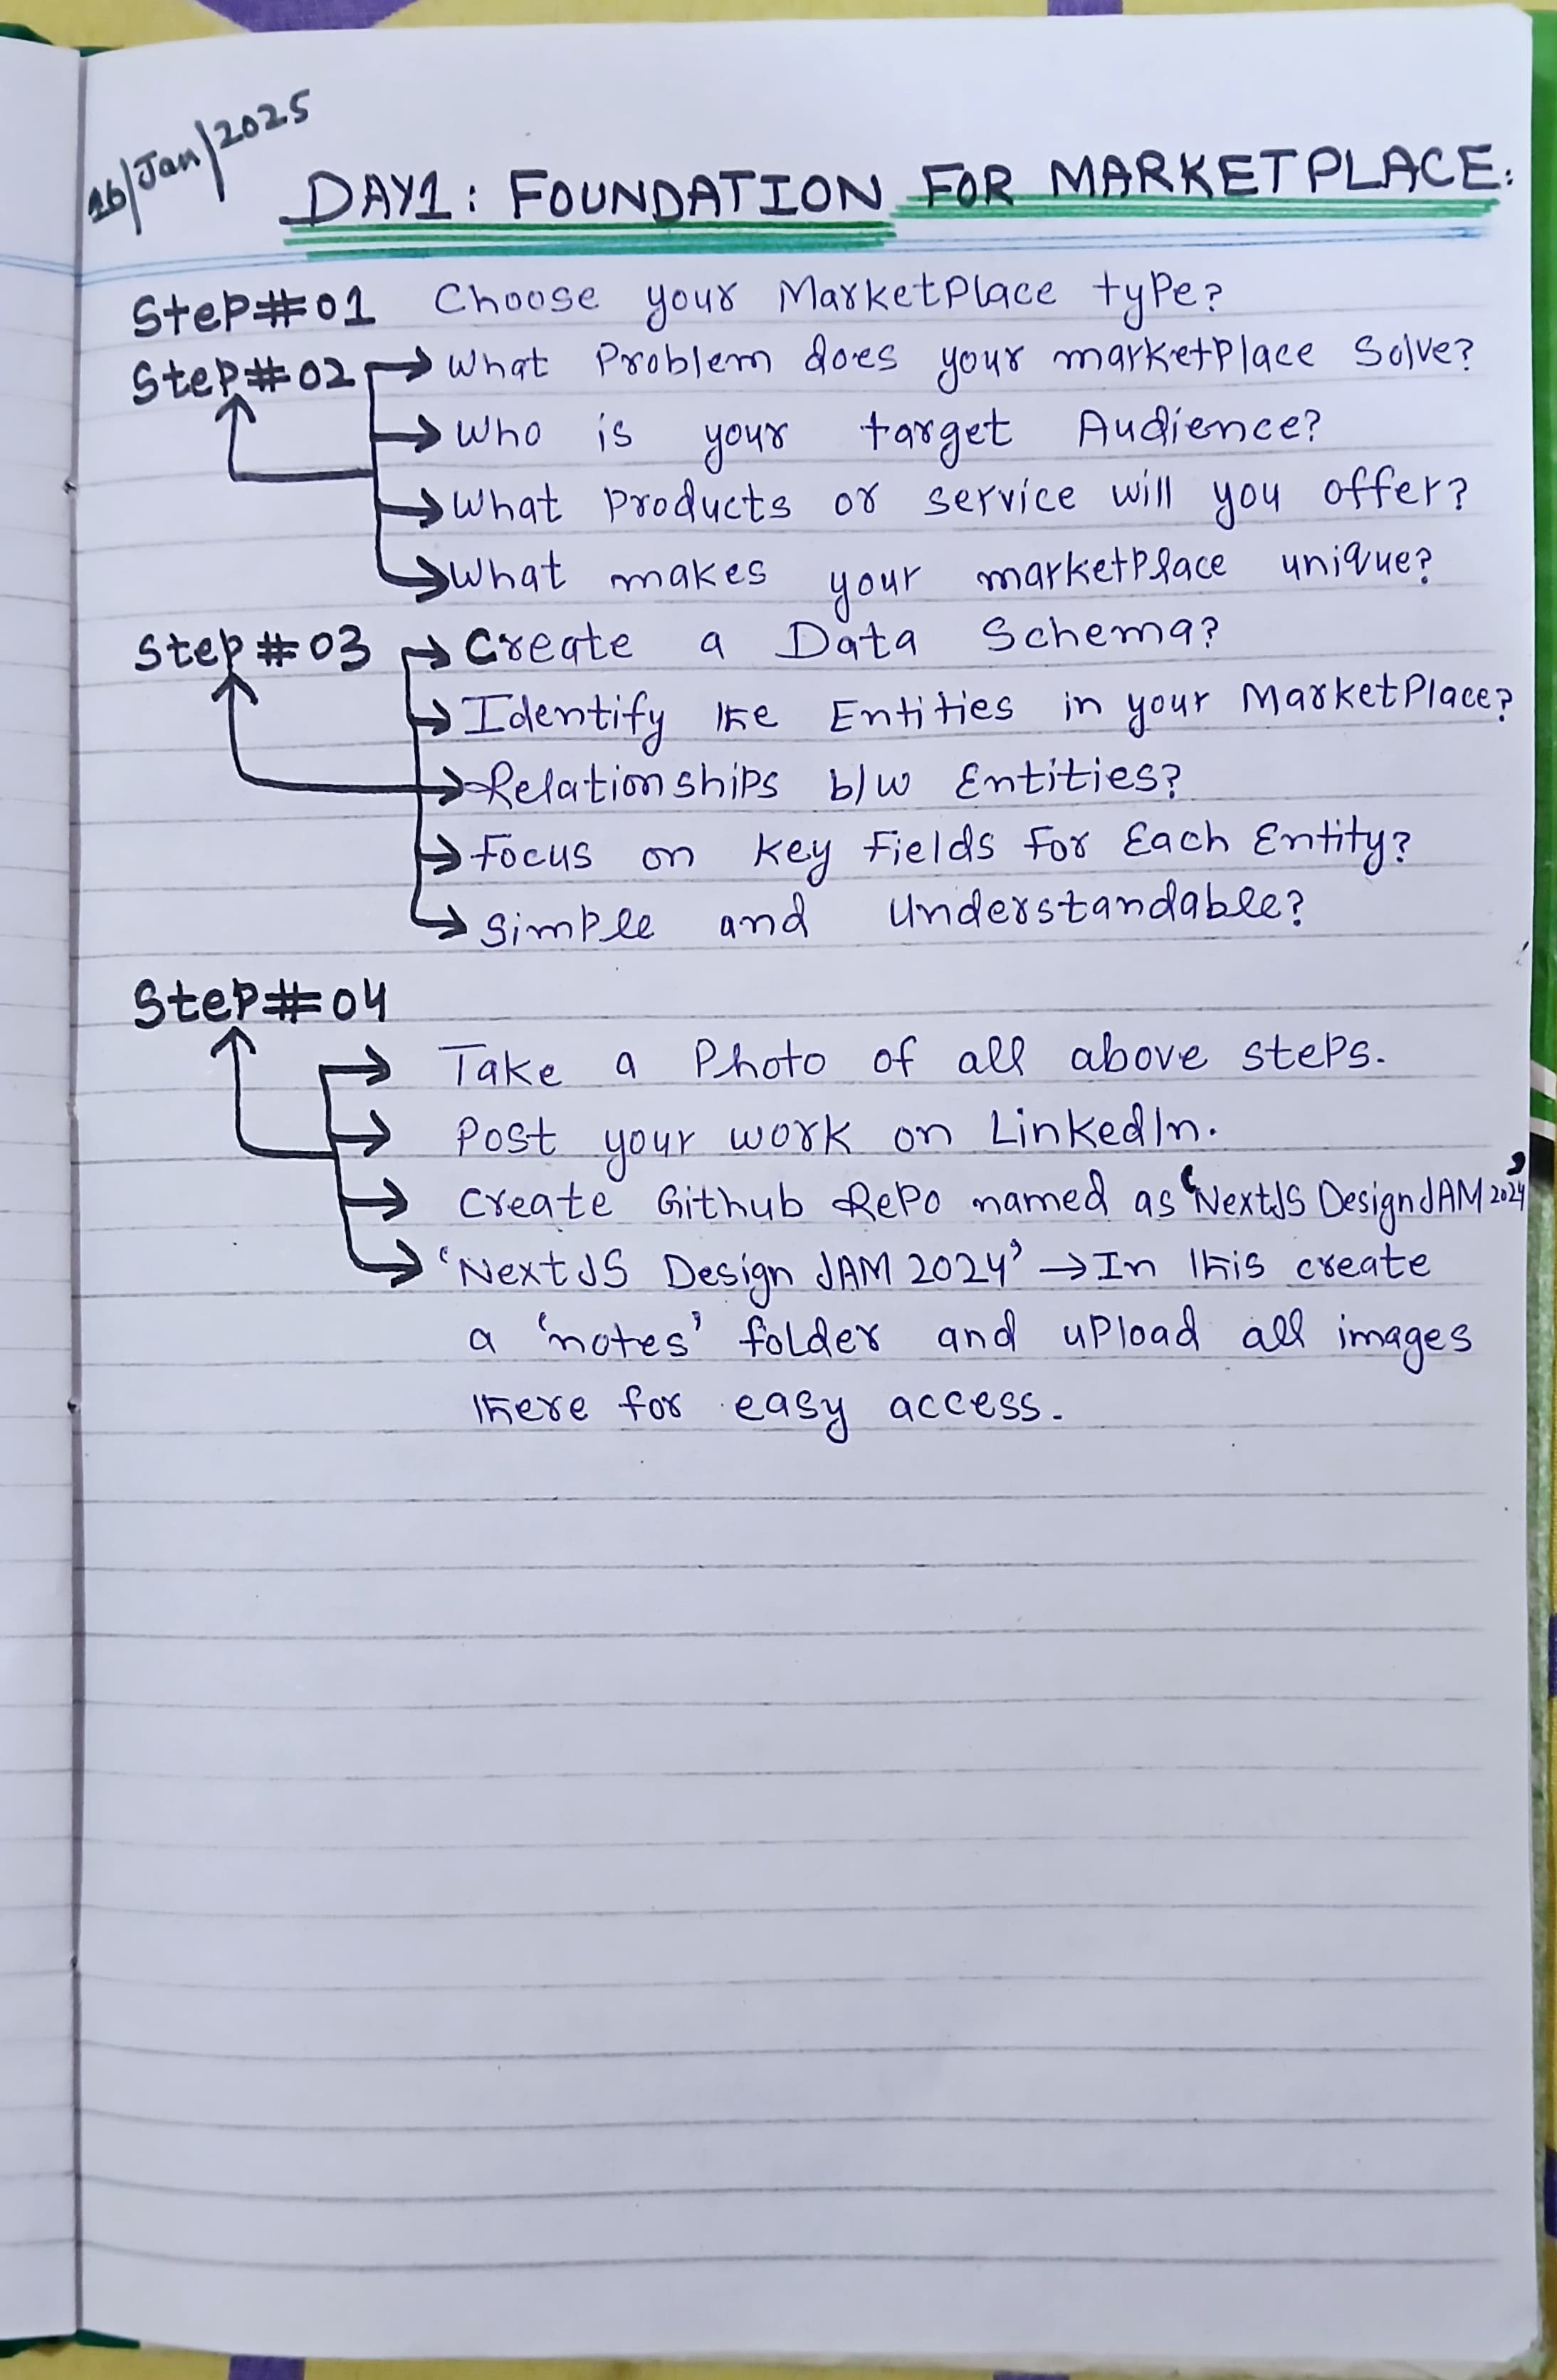 16/Jan/2025
DAY1: FOUNDATION FOR MARKETPLACE:
Step#01 Choose your MarketPlace type?
Step#02 → What Problem does your marketplace Solve?
→ Who is your target Audience?
→ What Products or service will you offer?
→ What makes your marketplace unique?
Step#03 → Create a Data Schema?
→ Identify the Entities in your MarketPlace?
→ Relationships b/w Entities?
→ Focus on key Fields For Each Entity?
→ Simple and Understandable?
Step#04
→ Take a Photo of all above steps.
→ Post your work on LinkedIn.
→ Create Github Repo named as 'NextJS Design JAM 2024'
→ 'NextJS Design JAM 2024' → In this create
a 'notes' folder and upload all images
there for easy access.